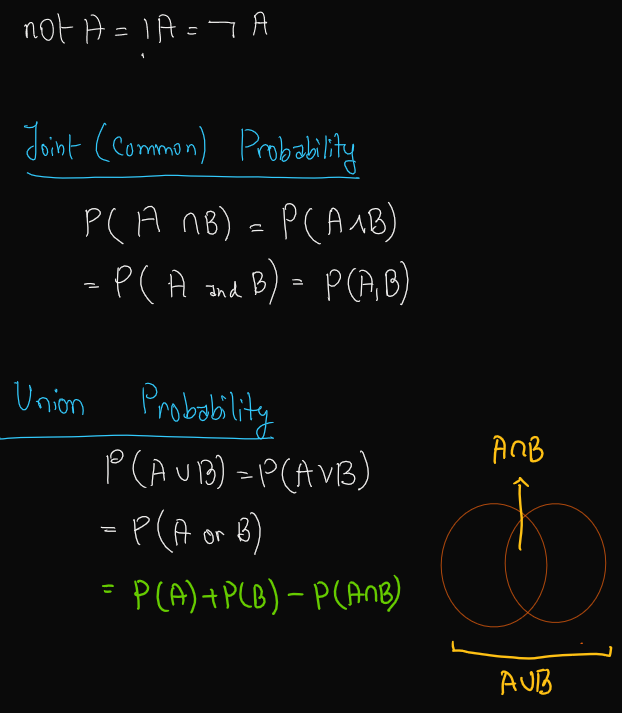 not A = !A = ¬ A
Joint (Common) Probability
P( A ∩B) = P(A∧B)
= P( A and B) = P(A,B)
Union Probability
P(A∪B) = P(A∨B)
= P(A or B)
= P(A)+P(B) - P(A∩B)
A∩B
A∪B